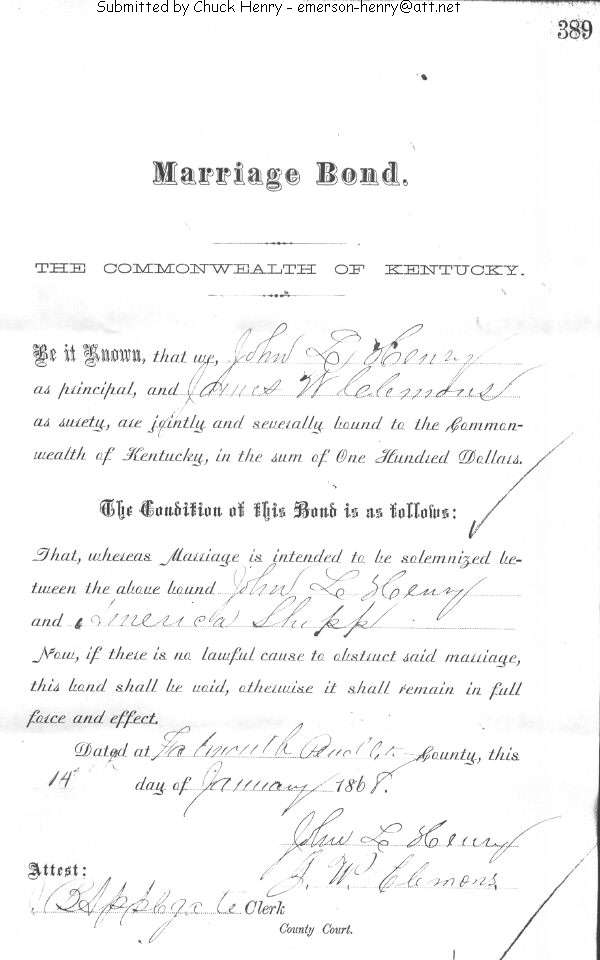 Submitted by Chuck Henry - emerson-henry@att.net
389
Marriage Bond.
THE COMMONWEALTH OF KENTUCKY.
Be it Known, that we, John L Henry
as principal, and James W Clemons
as surety, are jointly and severally bound to the Common-
wealth of Kentucky, in the sum of One Hundred Dollars.
The Condition of this Bond is as follows:
That, whereas Marriage is intended to be solemnized be-
tween the above bound John L Henry
and America Shipp
Now, if there is no lawful cause to obstruct said marriage,
this bond shall be void, otherwise it shall remain in full
force and effect.
Dated at Falmouth County, this
14 day of January 1868.
John L Henry
J. W. Clemons
Attest:
Clerk
County Court.